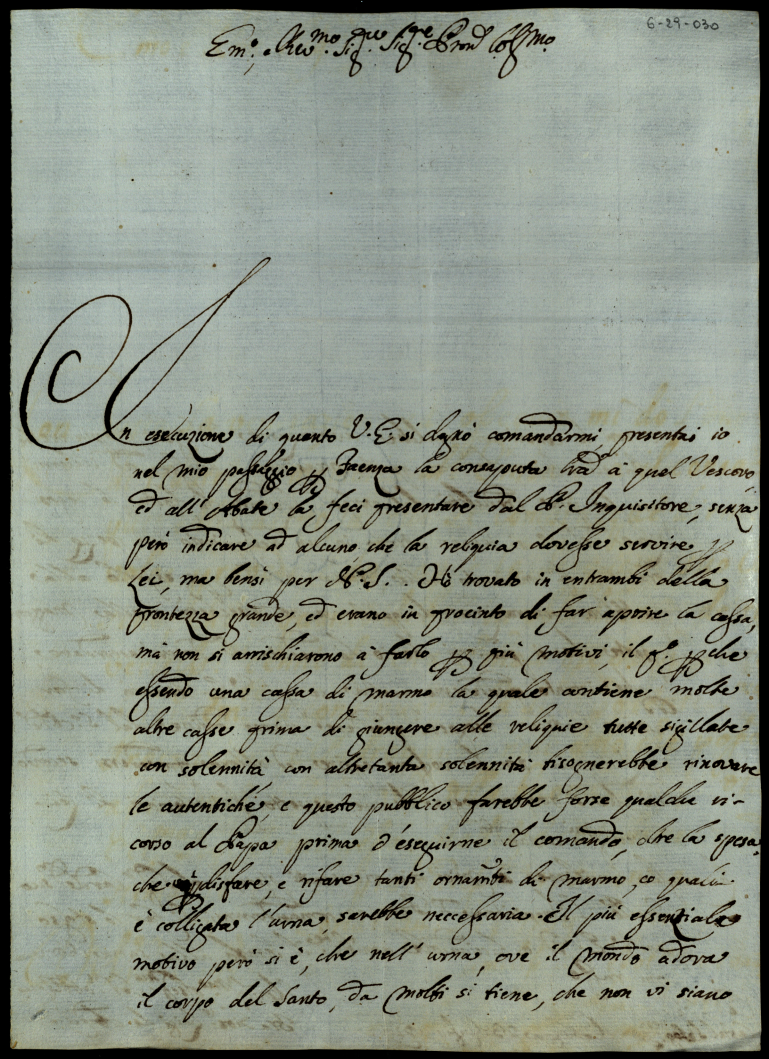 6-29-030
Em.º, e Rev.mo Sig.re Sig.re Pron Col.mo
In esecuzione di quanto V. E. si degnò comandarmi, presentai io
nel mio passaggio p Faenza la consaputa tra à quel Vescovo,
ed all' Abate la feci presentare dal P. Inquisitore, senza
però indicare ad alcuno che la reliquia dovesse servire p
Lei, ma bensì per N. S. . Hò trovato in entrambi della
prontezza grande, ed erano in procinto di far aprire la cassa,
mà non si arrischiarono à farlo p più motivi, il p.º pche
essendo una cassa di marmo la quale contiene molte
altre casse prima di giungere alle reliquie tutte sigillate
con solennità, con altretanta solennità bisognerebbe rinovare
le autentiche, e questo pubblico farebbe forse qualche ri-
corso al Papa prima d'eseguirne il comando, oltre la spesa,
che p disfare, e rifare tanti ornamti di marmo, co quali
è colligata l'urna, sarebbe neccessaria. Il più essenziale
motivo però si è, che nell' urna, ove il mondo adora
il corpo del Santo, da molti si tiene, che non vi siano